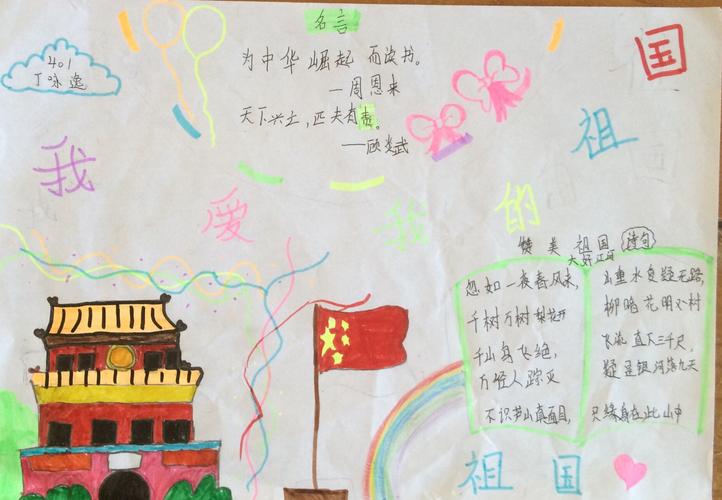 401
丁咏逸
名言
为中华崛起而读书。
—周恩来
天下兴亡,匹夫有责。
——顾炎武
我爱我的祖国
赞美祖国诗句
大好江河
忽如一夜春风来,
千树万树梨花开
千山鸟飞绝,
万径人踪灭
不识芦山真面目,
山重水复疑无路,
柳暗花明又一村
飞流直下三千尺,
疑是银河落九天
只缘身在此山中
祖国